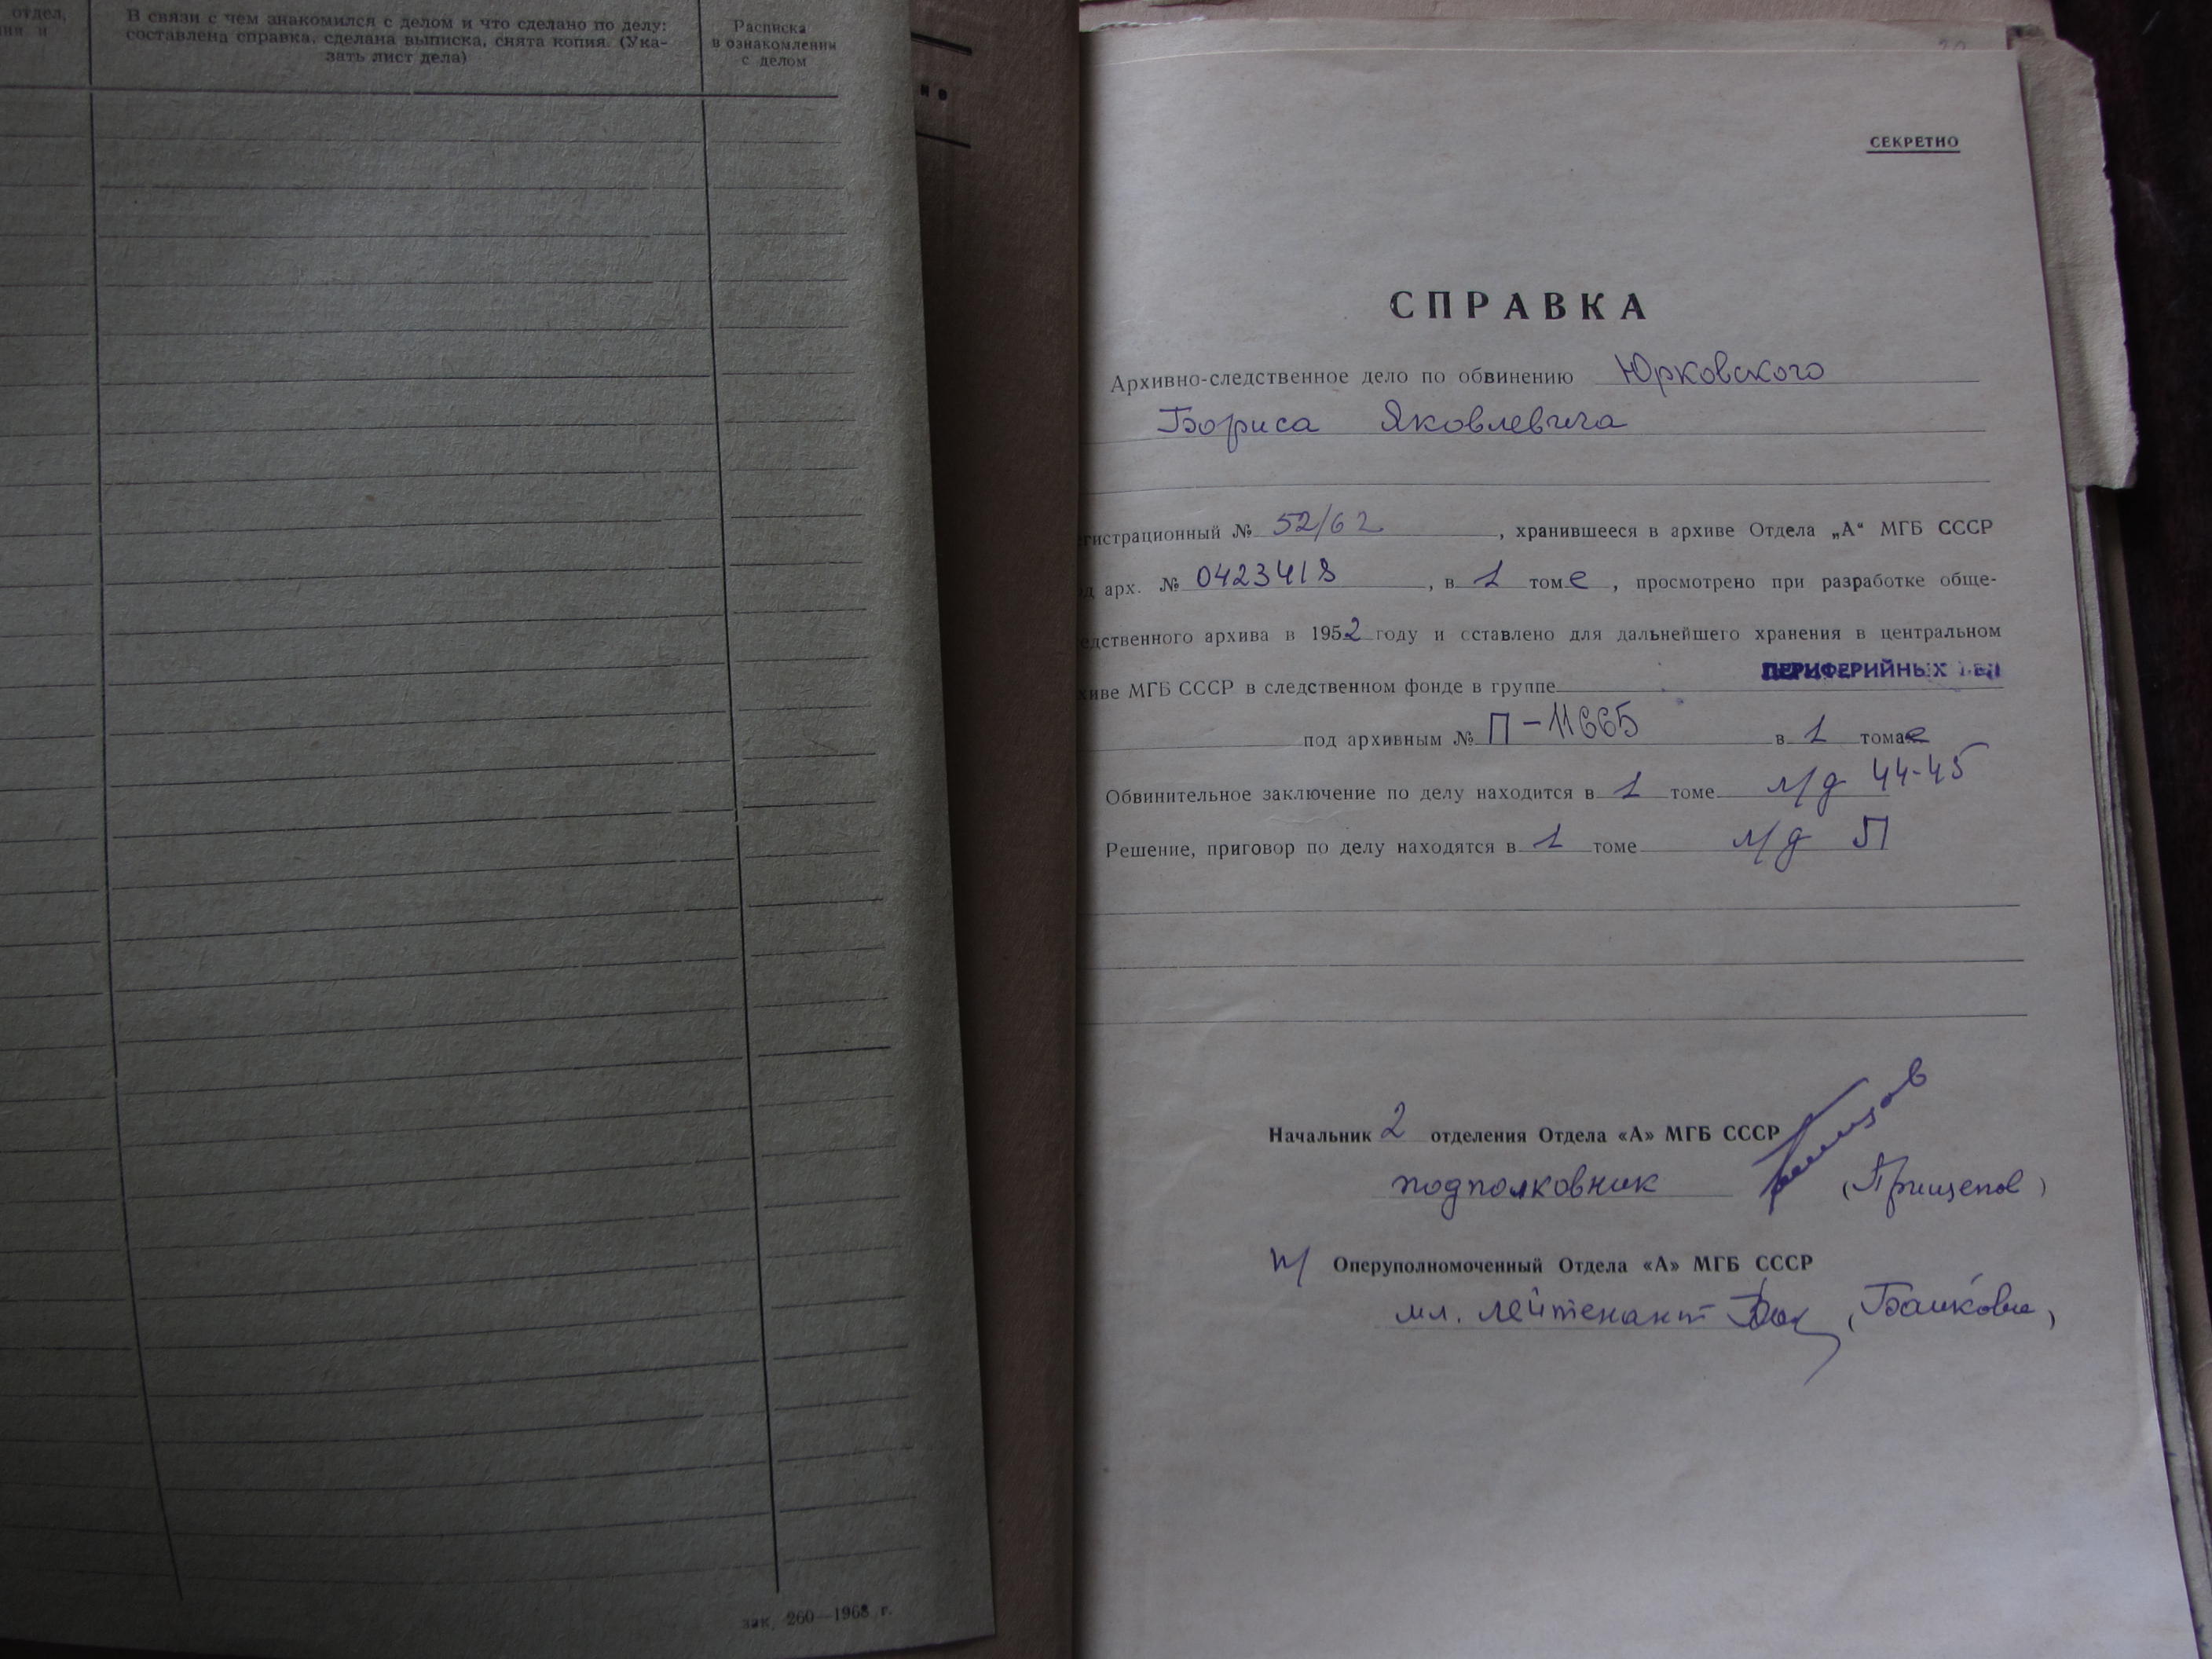 отдел,
В связи с чем знакомился с делом и что сделано по делу:
составлена справка, сделана выписка, снята копия. (Ука-
зать лист дела)
Расписка
в ознакомлении
с делом
зак. 260—1968 г.
СЕКРЕТНО
СПРАВКА
Архивно-следственное дело по обвинению Юрковского
Бориса Яковлевича
гистрационный № 52/62, хранившееся в архиве Отдела „А“ МГБ СССР
д арх. № 0423418, в 1 томе, просмотрено при разработке обще-
едственного архива в 1952 году и оставлено для дальнейшего хранения в центральном
хиве МГБ СССР в следственном фонде в группе ПЕРИФЕРИЙНЫХ
под архивным № П-11665 в 1 томе
Обвинительное заключение по делу находится в 1 томе л/д 44-45
Решение, приговор по делу находятся в 1 томе л/д
Начальник 2 отделения Отдела «А» МГБ СССР
подполковник (Прищепов)
Оперуполномоченный Отдела «А» МГБ СССР
мл. лейтенант